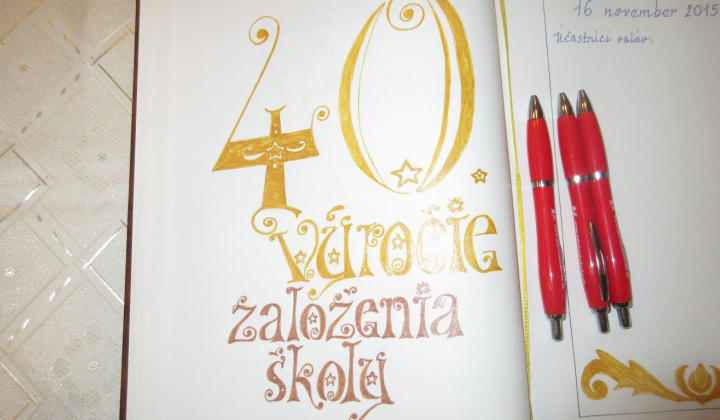 40.
výročie
založenia
školy
16. november 2015
Účastníci osláv.